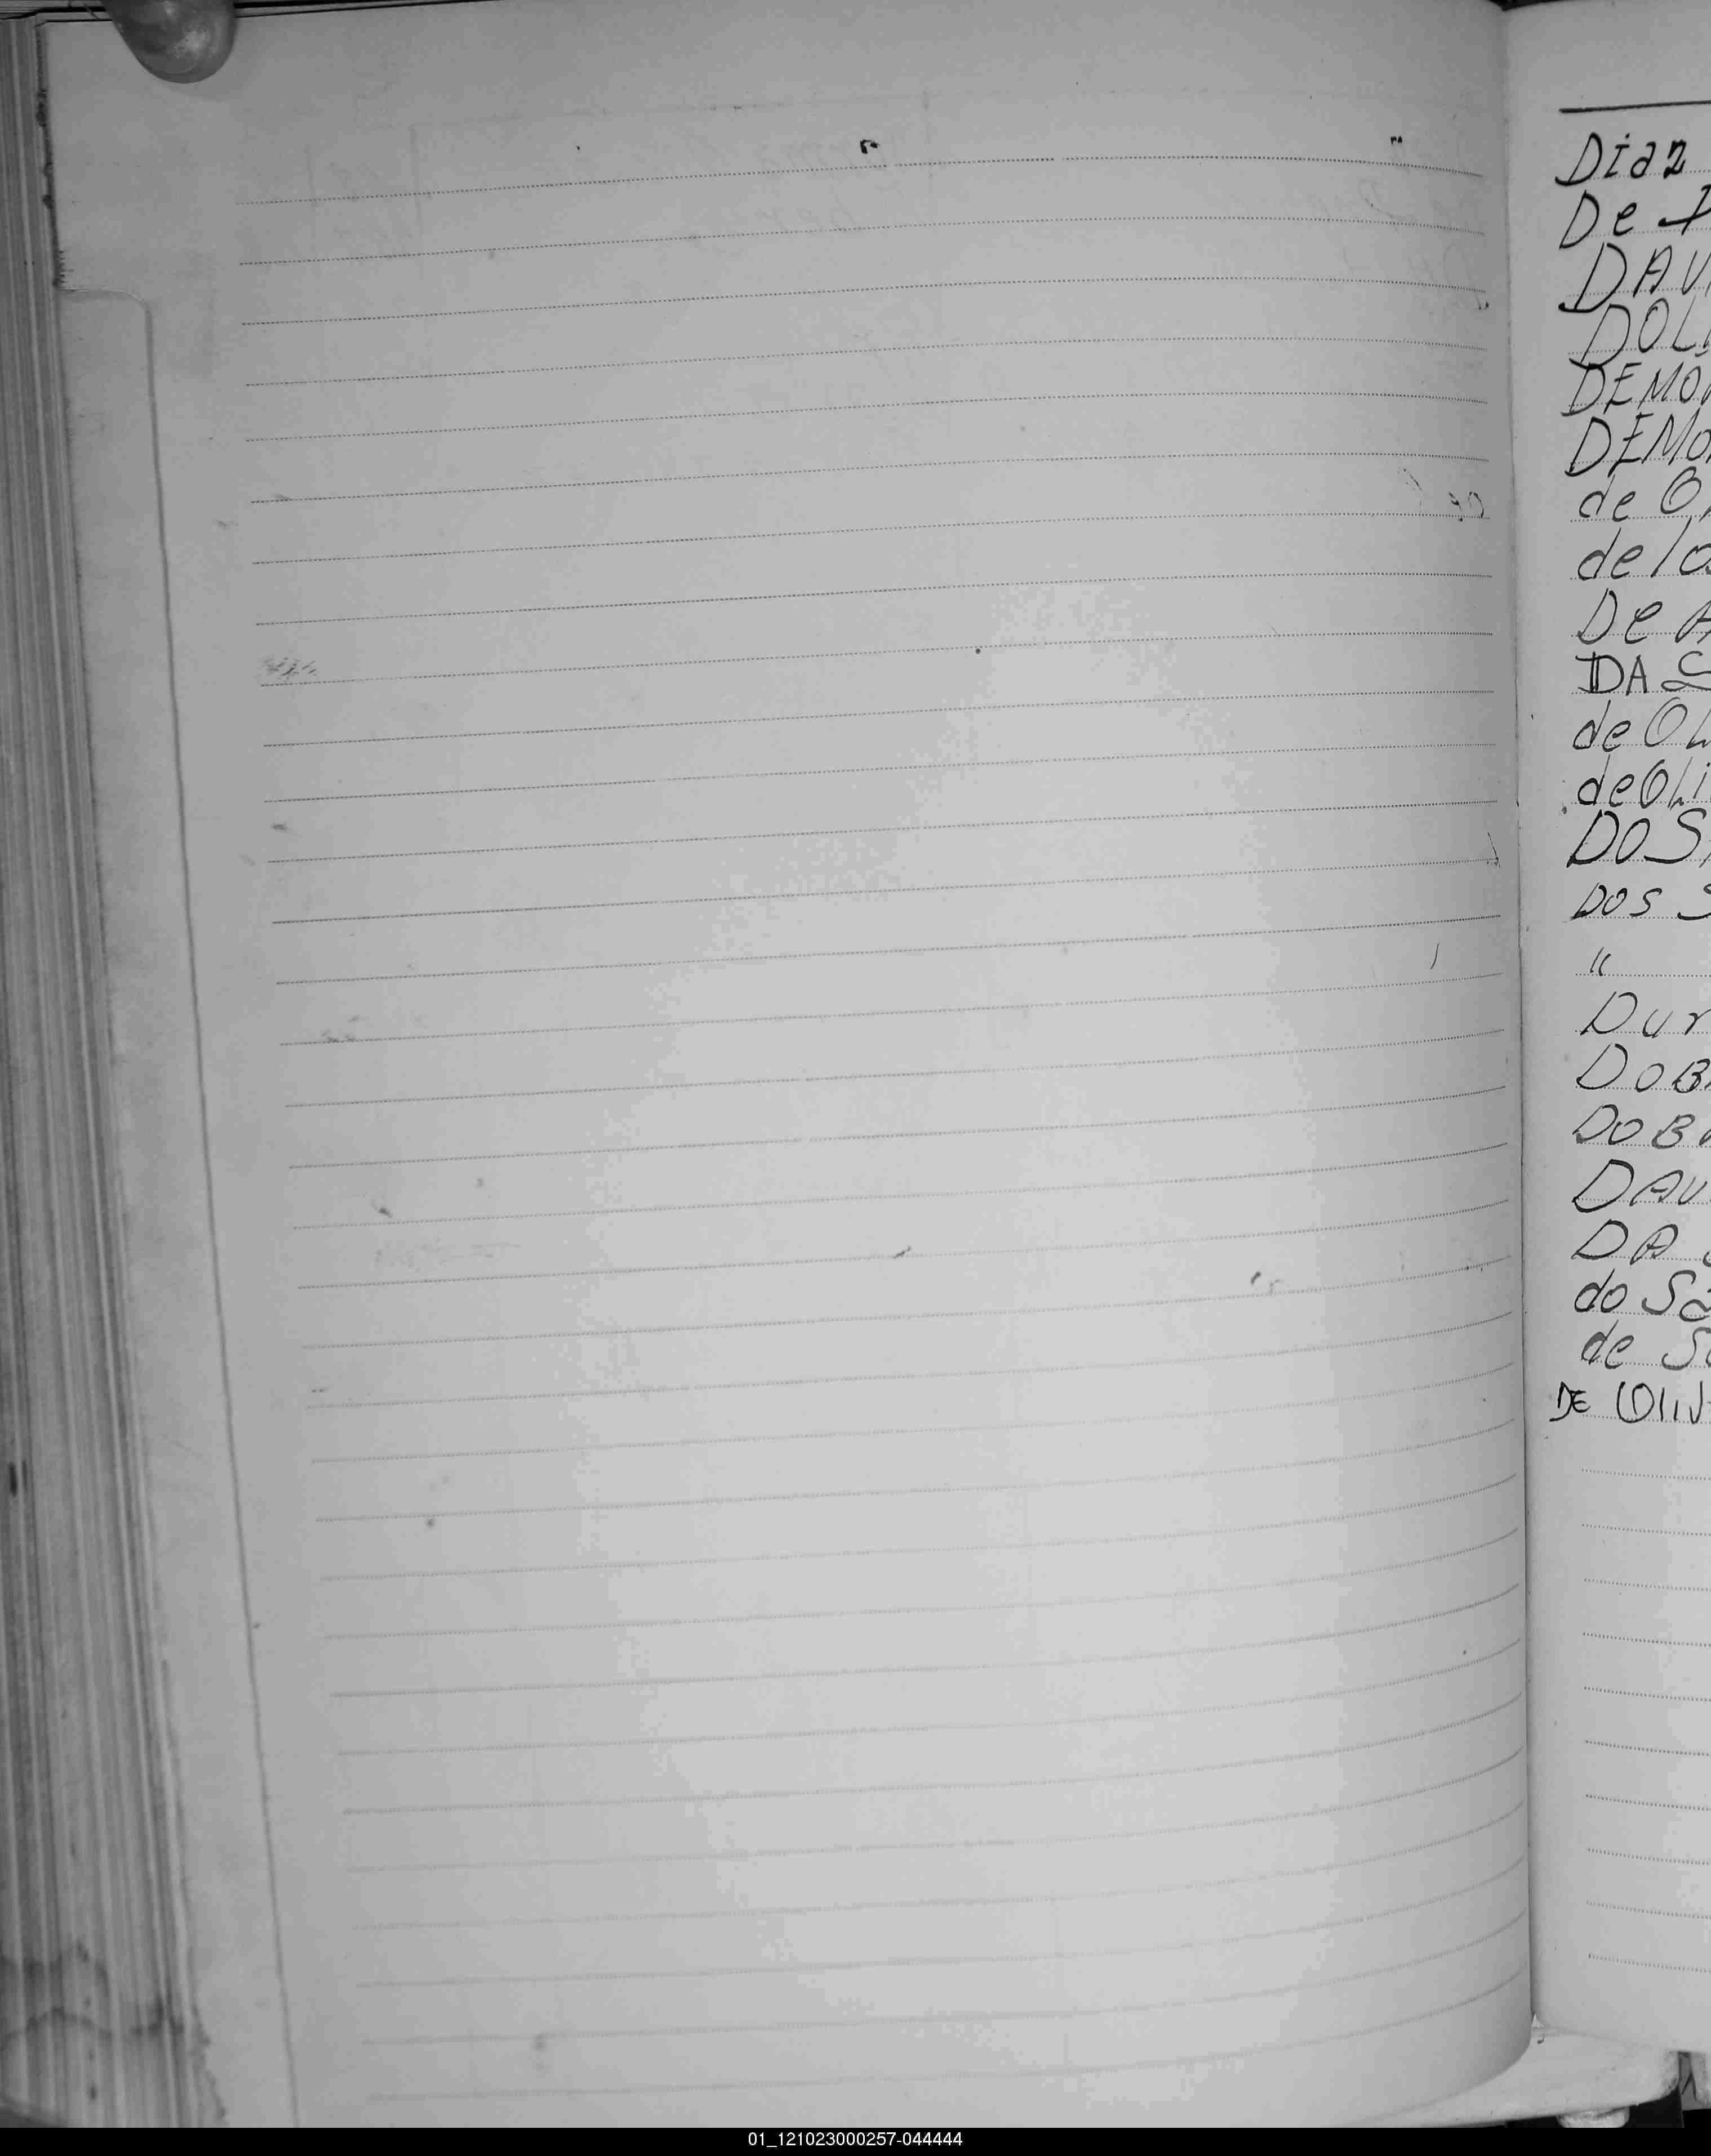 Diaz
De
DAV
DOL
DEMO
DEMO
de O
de lo
De A
DA S
de OL
de OLi
DOS
DOS S
"
Dur
DOB
DOB
DAV
DA
do Sa
de S
DE OLIV
01_121023000257-044444